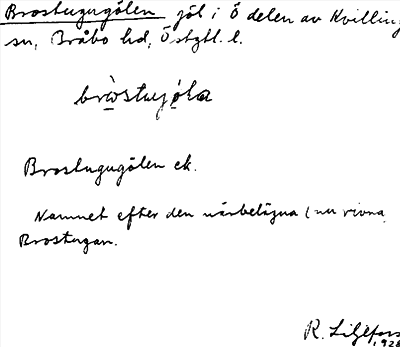 Brostugugölen göl i Ö delen av Kvilling
sn, Bråbo hd, Östgtl. l.
bròstugjǫ́lɑ
Brostugugölen ek.
Namnet efter den närbelägna (nu rivna
Brostugan.
R. Liljefors
1928